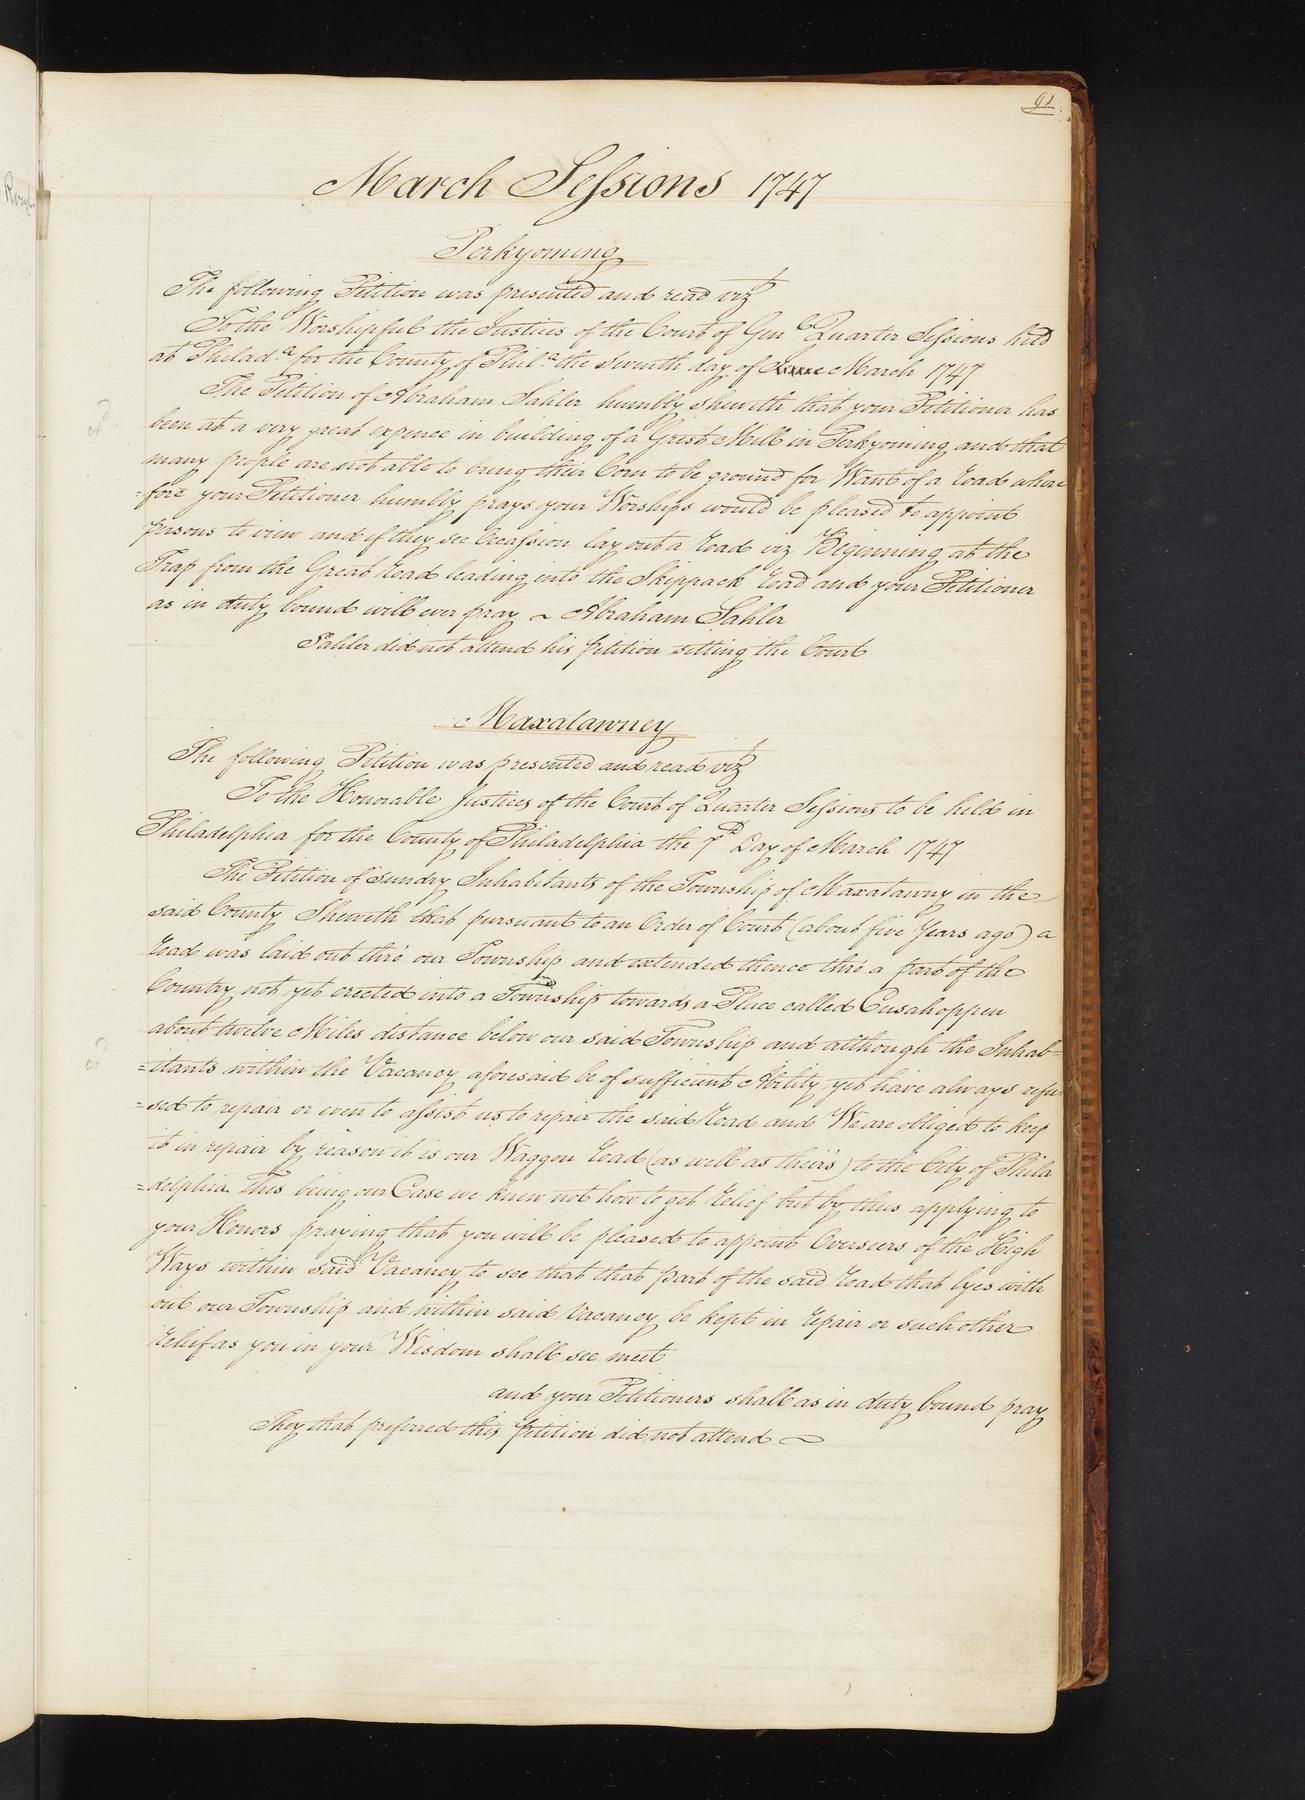 91
March Sessions 1747
Perkyoming
The following Petition was presented and read vizt
To the Worshipful the Justices of the Court of Genl Quarter Sessions held
at Philada for the County of Phila the seventh day of March 1747
The Petition of Abraham Sahler humbly sheweth that your Petitioner has
been at a very great expence in building of a Grist Mill in Perkyoming and that
many people are not able to bring their Corn to be ground for Want of a road where
=fore your Petitioner humbly prays your Worships would be pleased to appoint
persons to view and if they see Occassion lay out a road viz Beginning at the
Trap from the Great road leading into the Skippack road and your Petitioner
as in duty bound will ever pray ~ Abraham Sahler
Sahler did not attend his petition sitting the Court
Maxatawney
The following Petition was presented and read vizt
To the Honorable Justices of the Court of Quarter Sessions to be held in
Philadelphia for the County of Philadelphia the 7th Day of March 1747
The Petition of sundry Inhabitants of the Township of Maxatawny in the
said County Sheweth that pursuant to an Order of Court (about five Years ago) a
road was laid out thro' our Township and extended thence thro' a part of the
Country not yet erected into a Township towards a Place called Cusahoppen
about twelve Miles distance below our said Township and although the Inhab=
=itants within the Vacancy aforesaid be of sufficient Ability yet have always refu=
=sed to repair or even to assist us to repair the said road and We are obliged to keep
it in repair by reason it is our Waggon road (as well as their's) to the City of Phila
=delphia This being our Case we knew not how to get relief but by thus applying to
your Honors praying that you will be pleased to appoint Overseers of the High
Ways within said Vacancy to see that that part of the said road that lyes with
out our Township and within said Vacancy be kept in repair or such other
relief as you in your Wisdom shall see meet
and your Petitioners shall as in duty bound pray
They that preferred this petition did not attend ~